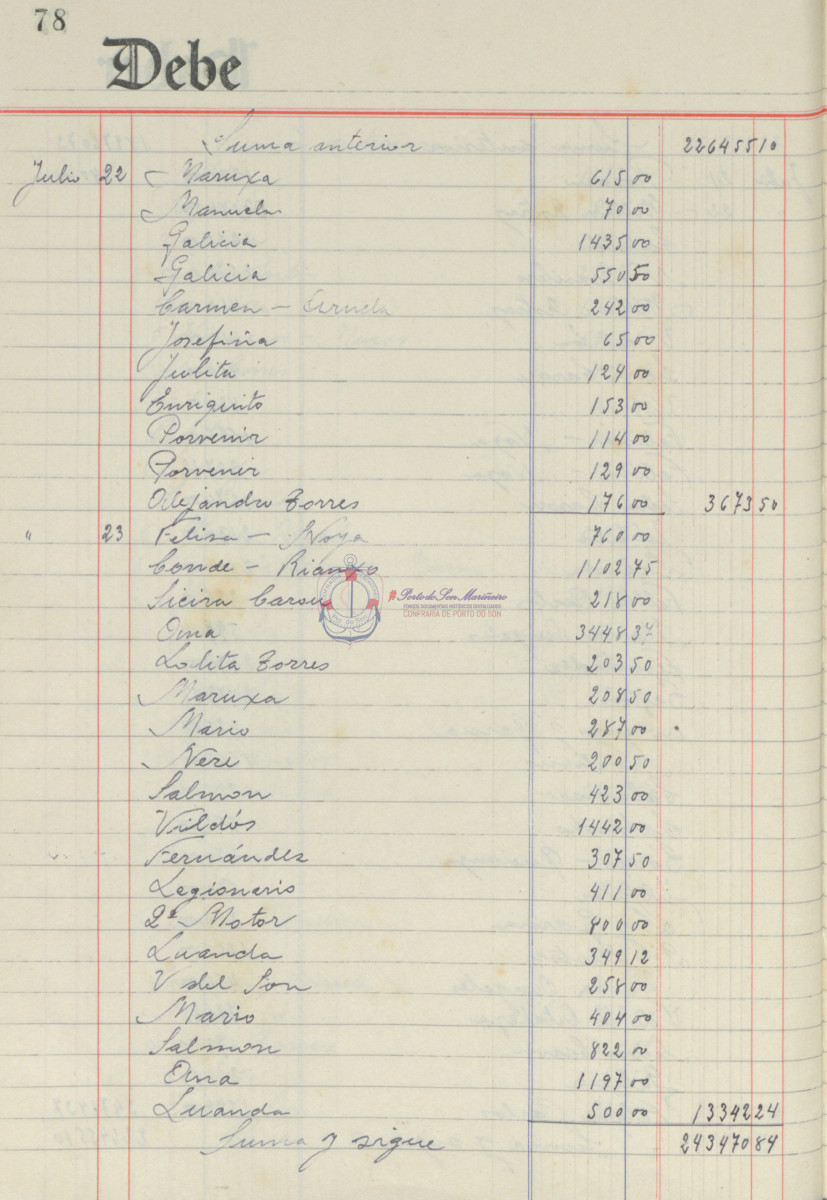 78
Debe
Suma anterior 226455 10
Julio 22 Maruxa 615 00
Manuela 70 00
Galicia 1435 00
Galicia 550 50
Carmen - 242 00
Josefina 65 00
Julita 124 00
Enriquito 153 00
Porvenir 114 00
Porvenir 129 00
Alejandro Torres 176 00 3673 50
" 23 Felisa - Noya 760 00
Conde - Rianxo 1102 75
Sieira Carou 218 00
Ana 3448 37
Lolita Torres 203 50
Maruxa 208 50
Mario 287 00
Nere 200 50
Salmon 423 00
1442 00
Fernández 307 50
Legionario 411 00
2º Motor 800 00
Luanda 349 12
V del Son 258 00
Mario 404 00
Salmon 822 00
Ana 1197 00
Luanda 500 00 13342 24
Suma y sigue 243470 84
Porto do Son Mariñeiro
FONDOS DOCUMENTAIS HISTÓRICOS DIXITALIZADOS
CONFRARÍA DE PORTO DO SON